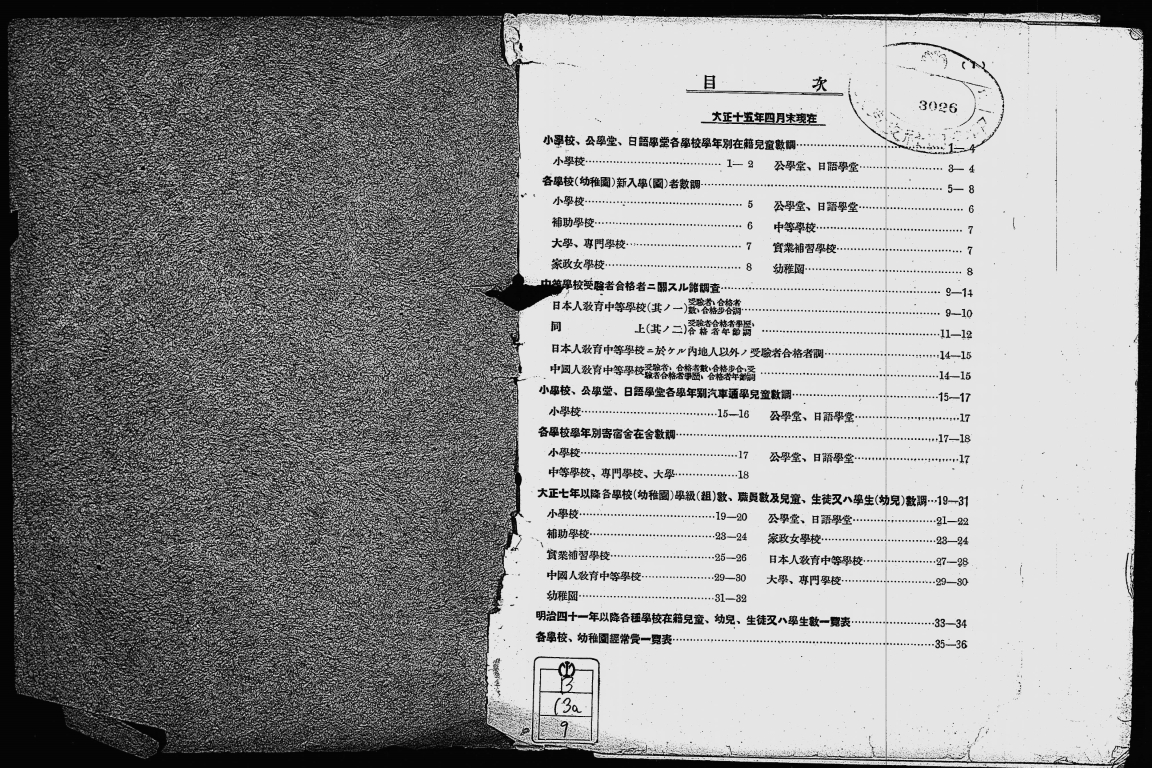 (1)
3026
目次
大正十五年四月末現在
小學校、公學堂、日語學堂各學校學年別在籍兒童數調……1—4
小學校……1—2 公學堂、日語學堂……3—4
各學校(幼稚園)新入學(園)者數調……5—8
小學校……5 公學堂、日語學堂……6
補助學校……6 中等學校……7
大學、專門學校……7 實業補習學校……7
家政女學校……8 幼稚園……8
中等學校受驗者合格者ニ關スル諸調査……9—14
日本人敎育中等學校(其ノ一)受驗者、合格者數、合格步合調……9—10
同上(其ノ二)受驗者合格者學歷、合格者年節調……11—12
日本人敎育中等學校ニ於ケル內地人以外ノ受驗者合格者調……14—15
中國人敎育中等學校受驗者、合格者數、合格步合、受驗者合格者學歷、合格者年節調……14—15
小學校、公學堂、日語學堂各學年別汽車通學兒童數調……15—17
小學校……15—16 公學堂、日語學堂……17
各學校學年別寄宿舍在舍數調……17—18
小學校……17 公學堂、日語學堂……17
中等學校、專門學校、大學……18
大正七年以降各學校(幼稚園)學級(組)數、職員數及兒童、生徒又ハ學生(幼兒)數調…19—31
小學校……19—20 公學堂、日語學堂……21—22
補助學校……23—24 家政女學校……23—24
實業補習學校……25—26 日本人敎育中等學校……27—28
中國人敎育中等學校……29—30 大學、專門學校……29—30
幼稚園……31—32
明治四十一年以降各種學校在籍兒童、幼兒、生徒又ハ學生數一覽表……33—34
各學校、幼稚園經常費一覽表……35—36
B
13a
9